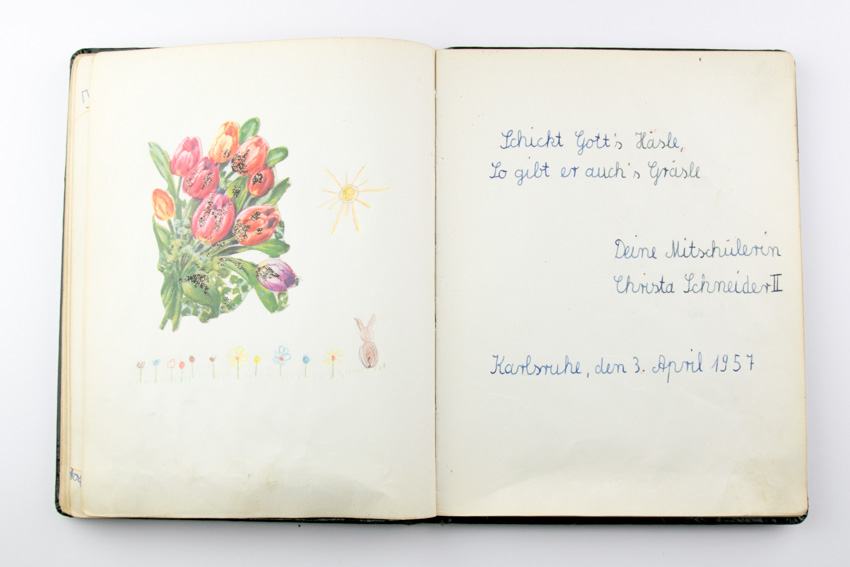 Schickt Gott's Häsle,
So gibt er auch's Gräsle
Deine Mitschülerin
Christa Schneider II
Karlsruhe, den 3. April 1957